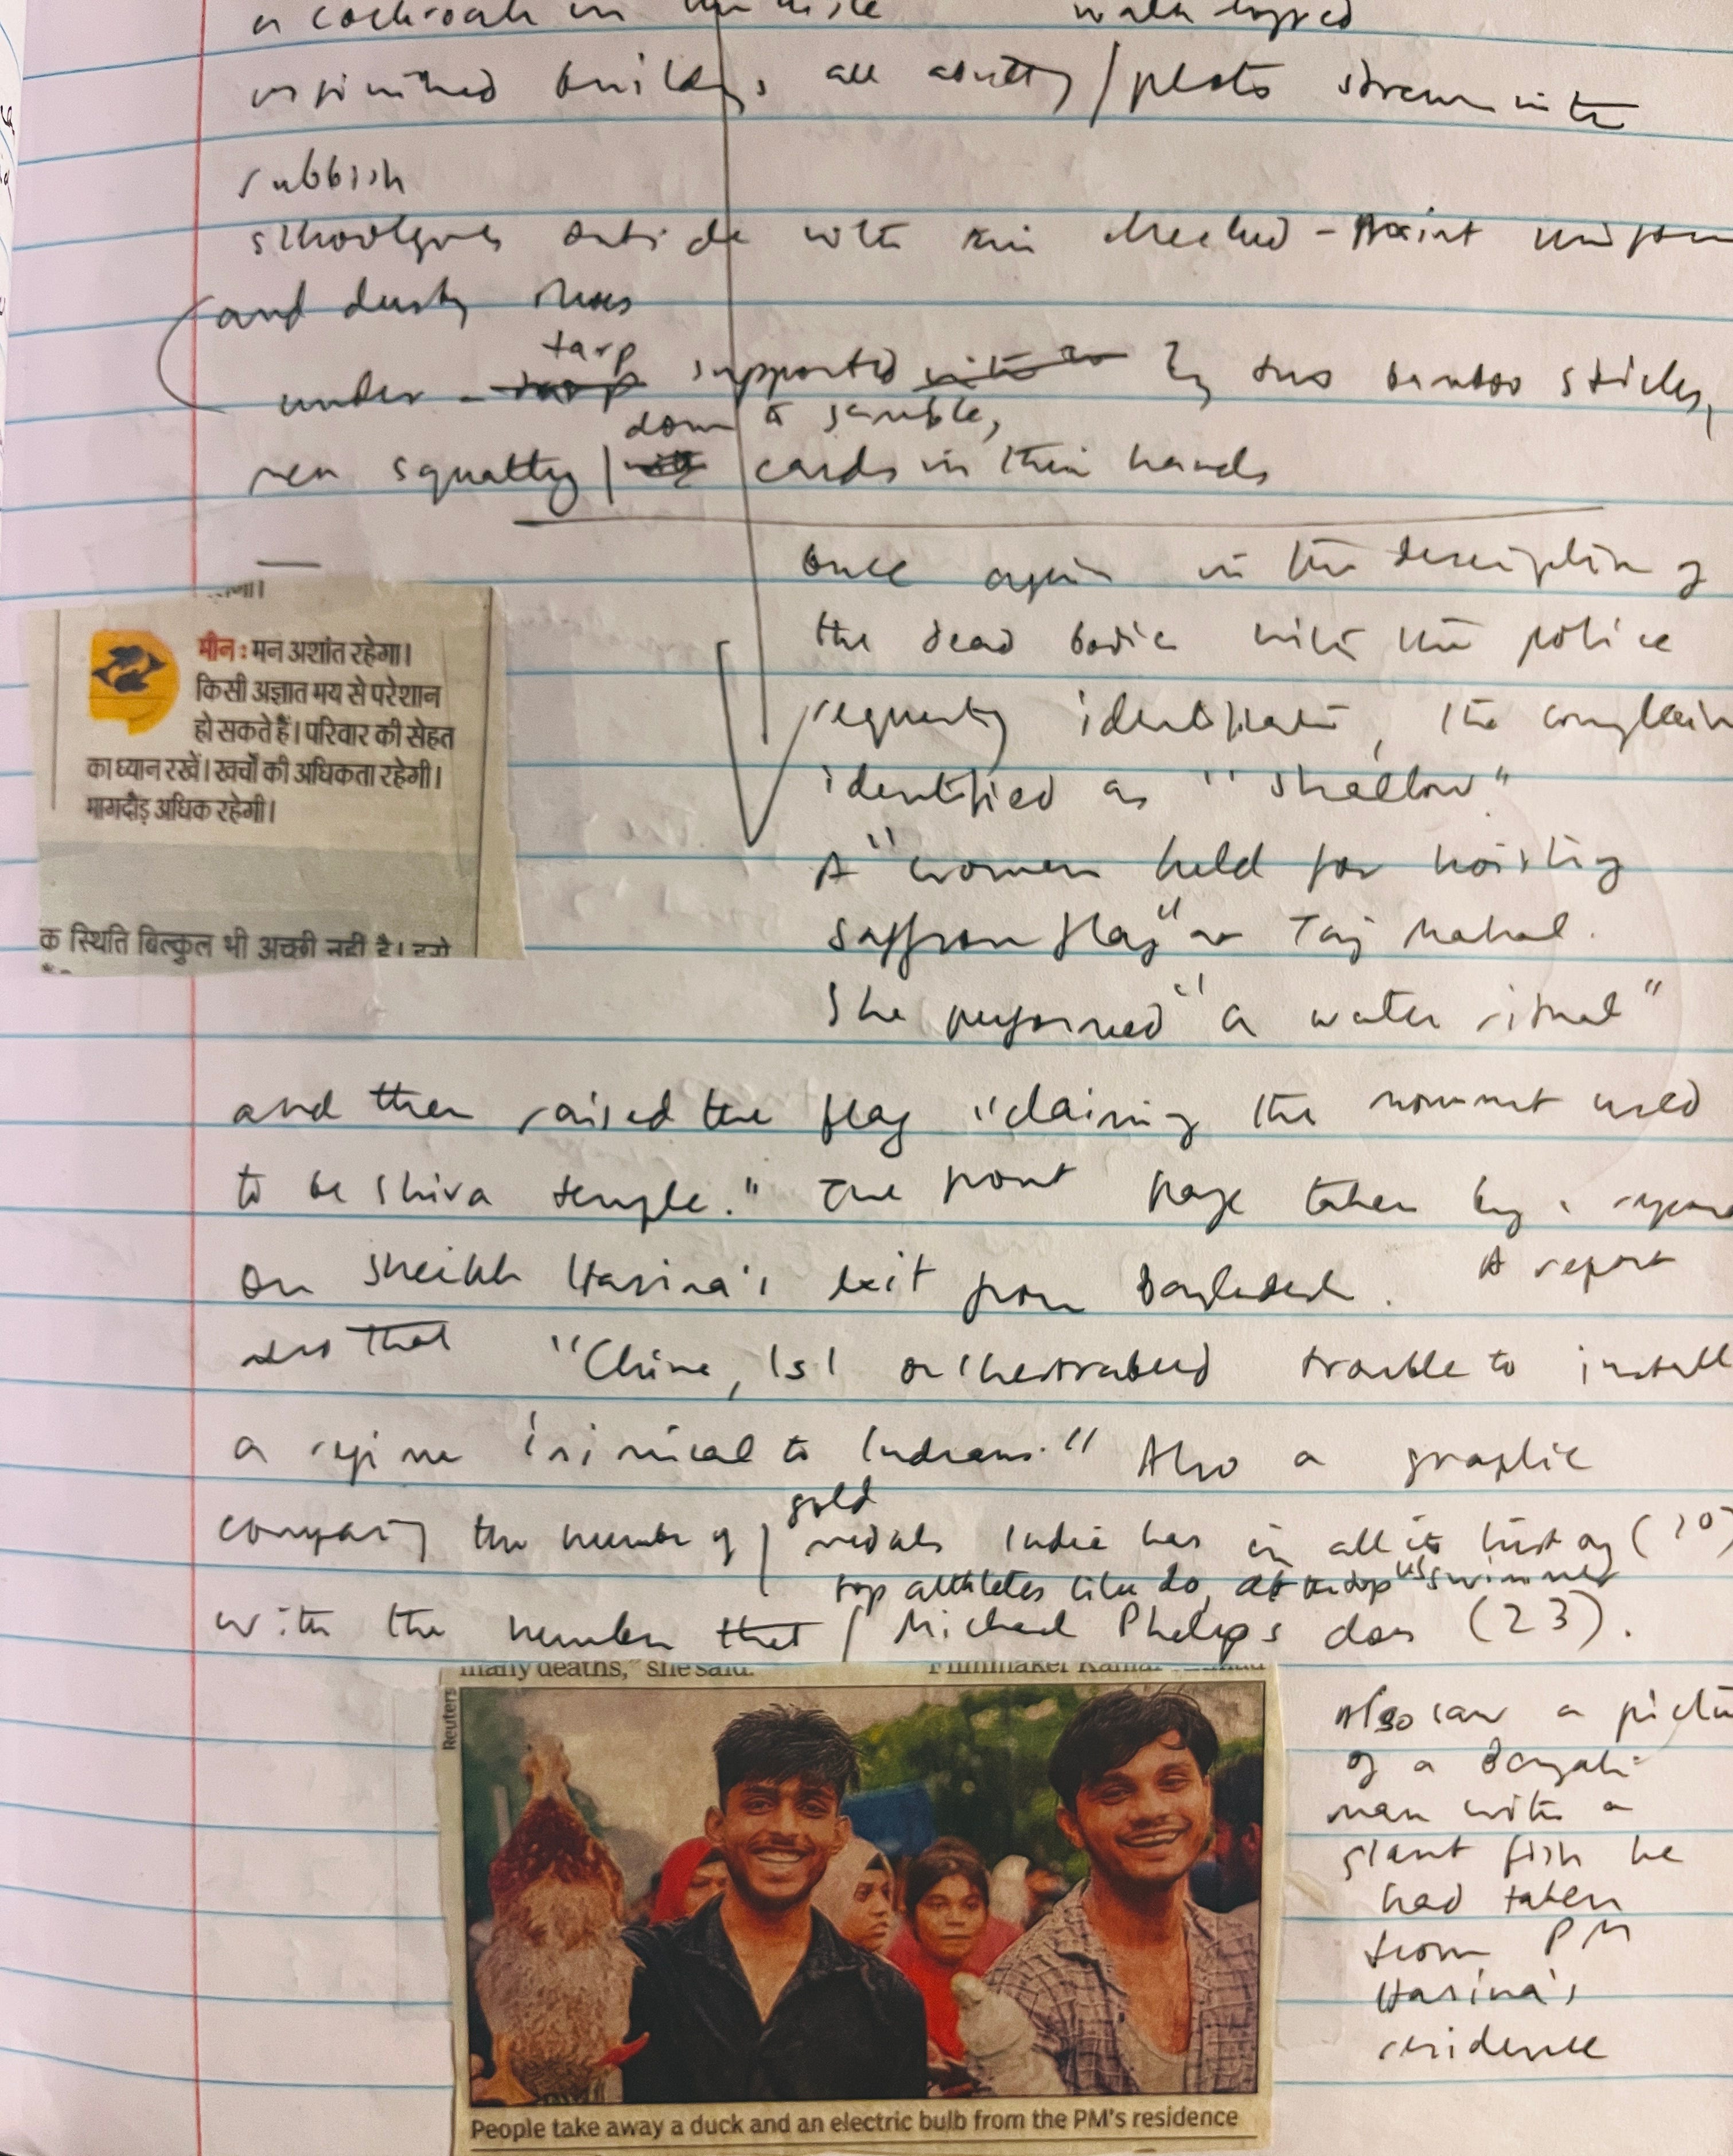 a cockroach in the
unfinished buildings all abutting / plots strewn with
rubbish
schoolgirls outside with in checked-print uniform
and dusty shoes
tarp
under - tarp supported with a by two bamboo sticks,
down to gamble,
men squatting | with cards in their hands
once again in the description of
the dead bodies with the police
requesting identification, the complexion
identified as "shallow"
A "women held for hoisting
saffron flag" at Taj Mahal.
She performed "a water ritual"
and then raised the flag "claiming the monument used
to be Shiva temple." The front page taken by a
on Sheikh Hasina's exit from Bangladesh. A report
says that "China, ISI orchestrated trouble to install
a regime inimical to Indians." Also a graphic
gold
comparing the number of | medals India has in all its history (10)
top athletes like do, US swimmer
with the number that / Michael Phelps does (23).
मीन: मन अशांत रहेगा।
किसी अज्ञात भय से परेशान
हो सकते हैं। परिवार की सेहत
का ध्यान रखें। खर्चों की अधिकता रहेगी।
भागदौड़ अधिक रहेगी।
क स्थिति बिल्कुल भी अच्छी नहीं है।
many deaths," she said.
Filmmaker Kamar
Reuters
People take away a duck and an electric bulb from the PM's residence
Also saw a picture
of a Bengali
man with a
giant fish he
had taken
from PM
Hasina's
residence